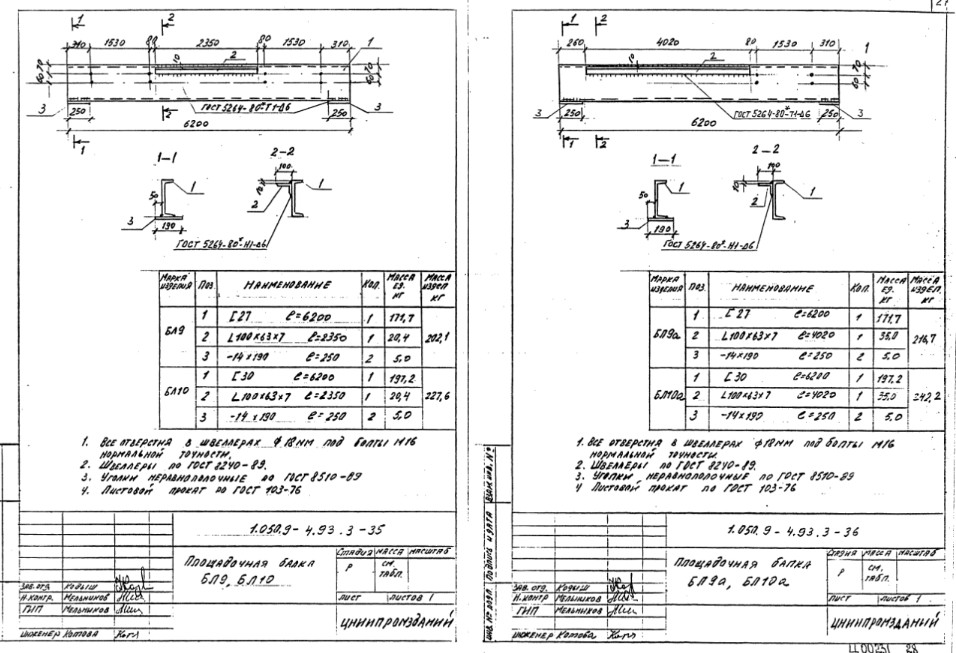 27
1
2
310
1530
80
2350
80
1530
310
1
70
60
10
2
70
60
3
250
ГОСТ 5264-80*-Т1-Δ6
2
250
3
6200
1
1-1
1
50
3
190
2-2
100
10
1
2
ГОСТ 5264-80*-Н1-Δ6
МАРКА ИЗДЕЛИЯ ПОЗ. НАИМЕНОВАНИЕ КОЛ. МАССА ЕД. КГ МАССА ИЗДЕЛ. КГ
БЛ9
1 [27 ℓ=6200 1 171,7
2 L100×63×7 ℓ=2350 1 20,4 202,1
3 -14×190 ℓ=250 2 5,0
БЛ10
1 [30 ℓ=6200 1 197,2
2 L100×63×7 ℓ=2350 1 20,4 227,6
3 -14×190 ℓ=250 2 5,0
1. ВСЕ ОТВЕРСТИЯ В ШВЕЛЛЕРАХ Ф 18ММ ПОД БОЛТЫ М16
НОРМАЛЬНОЙ ТОЧНОСТИ.
2. ШВЕЛЛЕРЫ ПО ГОСТ 8240-89.
3. УГОЛКИ НЕРАВНОПОЛОЧНЫЕ ПО ГОСТ 8510-89
4. ЛИСТОВОЙ ПРОКАТ ПО ГОСТ 103-76
1.050.9-4.93.3-35
ПЛОЩАДОЧНАЯ БАЛКА
БЛ9, БЛ10
СТАДИЯ МАССА МАСШТАБ
Р СМ. ТАБЛ.
ЛИСТ ЛИСТОВ 1
ЦНИИПРОМЗДАНИЙ
ЗАВ. ОТД. КОДЫШ
Н.КОНТР. МЕЛЬНИКОВ
ГИП МЕЛЬНИКОВ
ИНЖЕНЕР КОТОВА
1
2
260
4020
80
1530
310
1
10
2
70
60
3
250
ГОСТ 5264-80*-Т1-Δ6
250
3
6200
1
2
1-1
1
50
3
190
2-2
100
10
1
2
ГОСТ 5264-80*-Н1-Δ6
МАРКА ИЗДЕЛИЯ ПОЗ. НАИМЕНОВАНИЕ КОЛ. МАССА ЕД. КГ МАССА ИЗДЕЛ. КГ
БЛ9а
1 [27 ℓ=6200 1 171,7
2 L100×63×7 ℓ=4020 1 35,0 216,7
3 -14×190 ℓ=250 2 5,0
БЛ10а
1 [30 ℓ=6200 1 197,2
2 L100×63×7 ℓ=4020 1 35,0 242,2
3 -14×190 ℓ=250 2 5,0
1. ВСЕ ОТВЕРСТИЯ В ШВЕЛЛЕРАХ Ф18ММ ПОД БОЛТЫ М16
НОРМАЛЬНОЙ ТОЧНОСТИ.
2. ШВЕЛЛЕРЫ ПО ГОСТ 8240-89.
3. УГОЛКИ НЕРАВНОПОЛОЧНЫЕ ПО ГОСТ 8510-89
4 ЛИСТОВОЙ ПРОКАТ ПО ГОСТ 103-76
1.050.9-4.93.3-36
ПЛОЩАДОЧНАЯ БАЛКА
БЛ9а, БЛ10а
СТАДИЯ МАССА МАСШТАБ
Р СМ. ТАБЛ.
ЛИСТ ЛИСТОВ 1
ЦНИИПРОМЗДАНИЙ
ЗАВ. ОТД. КОДЫШ
Н.КОНТР МЕЛЬНИКОВ
ГИП МЕЛЬНИКОВ
ИНЖЕНЕР КОТОВА
ИНВ. № ПОДЛ. ПОДПИСЬ И ДАТА ВЗАМ.ИНВ. №
Ц00231 28